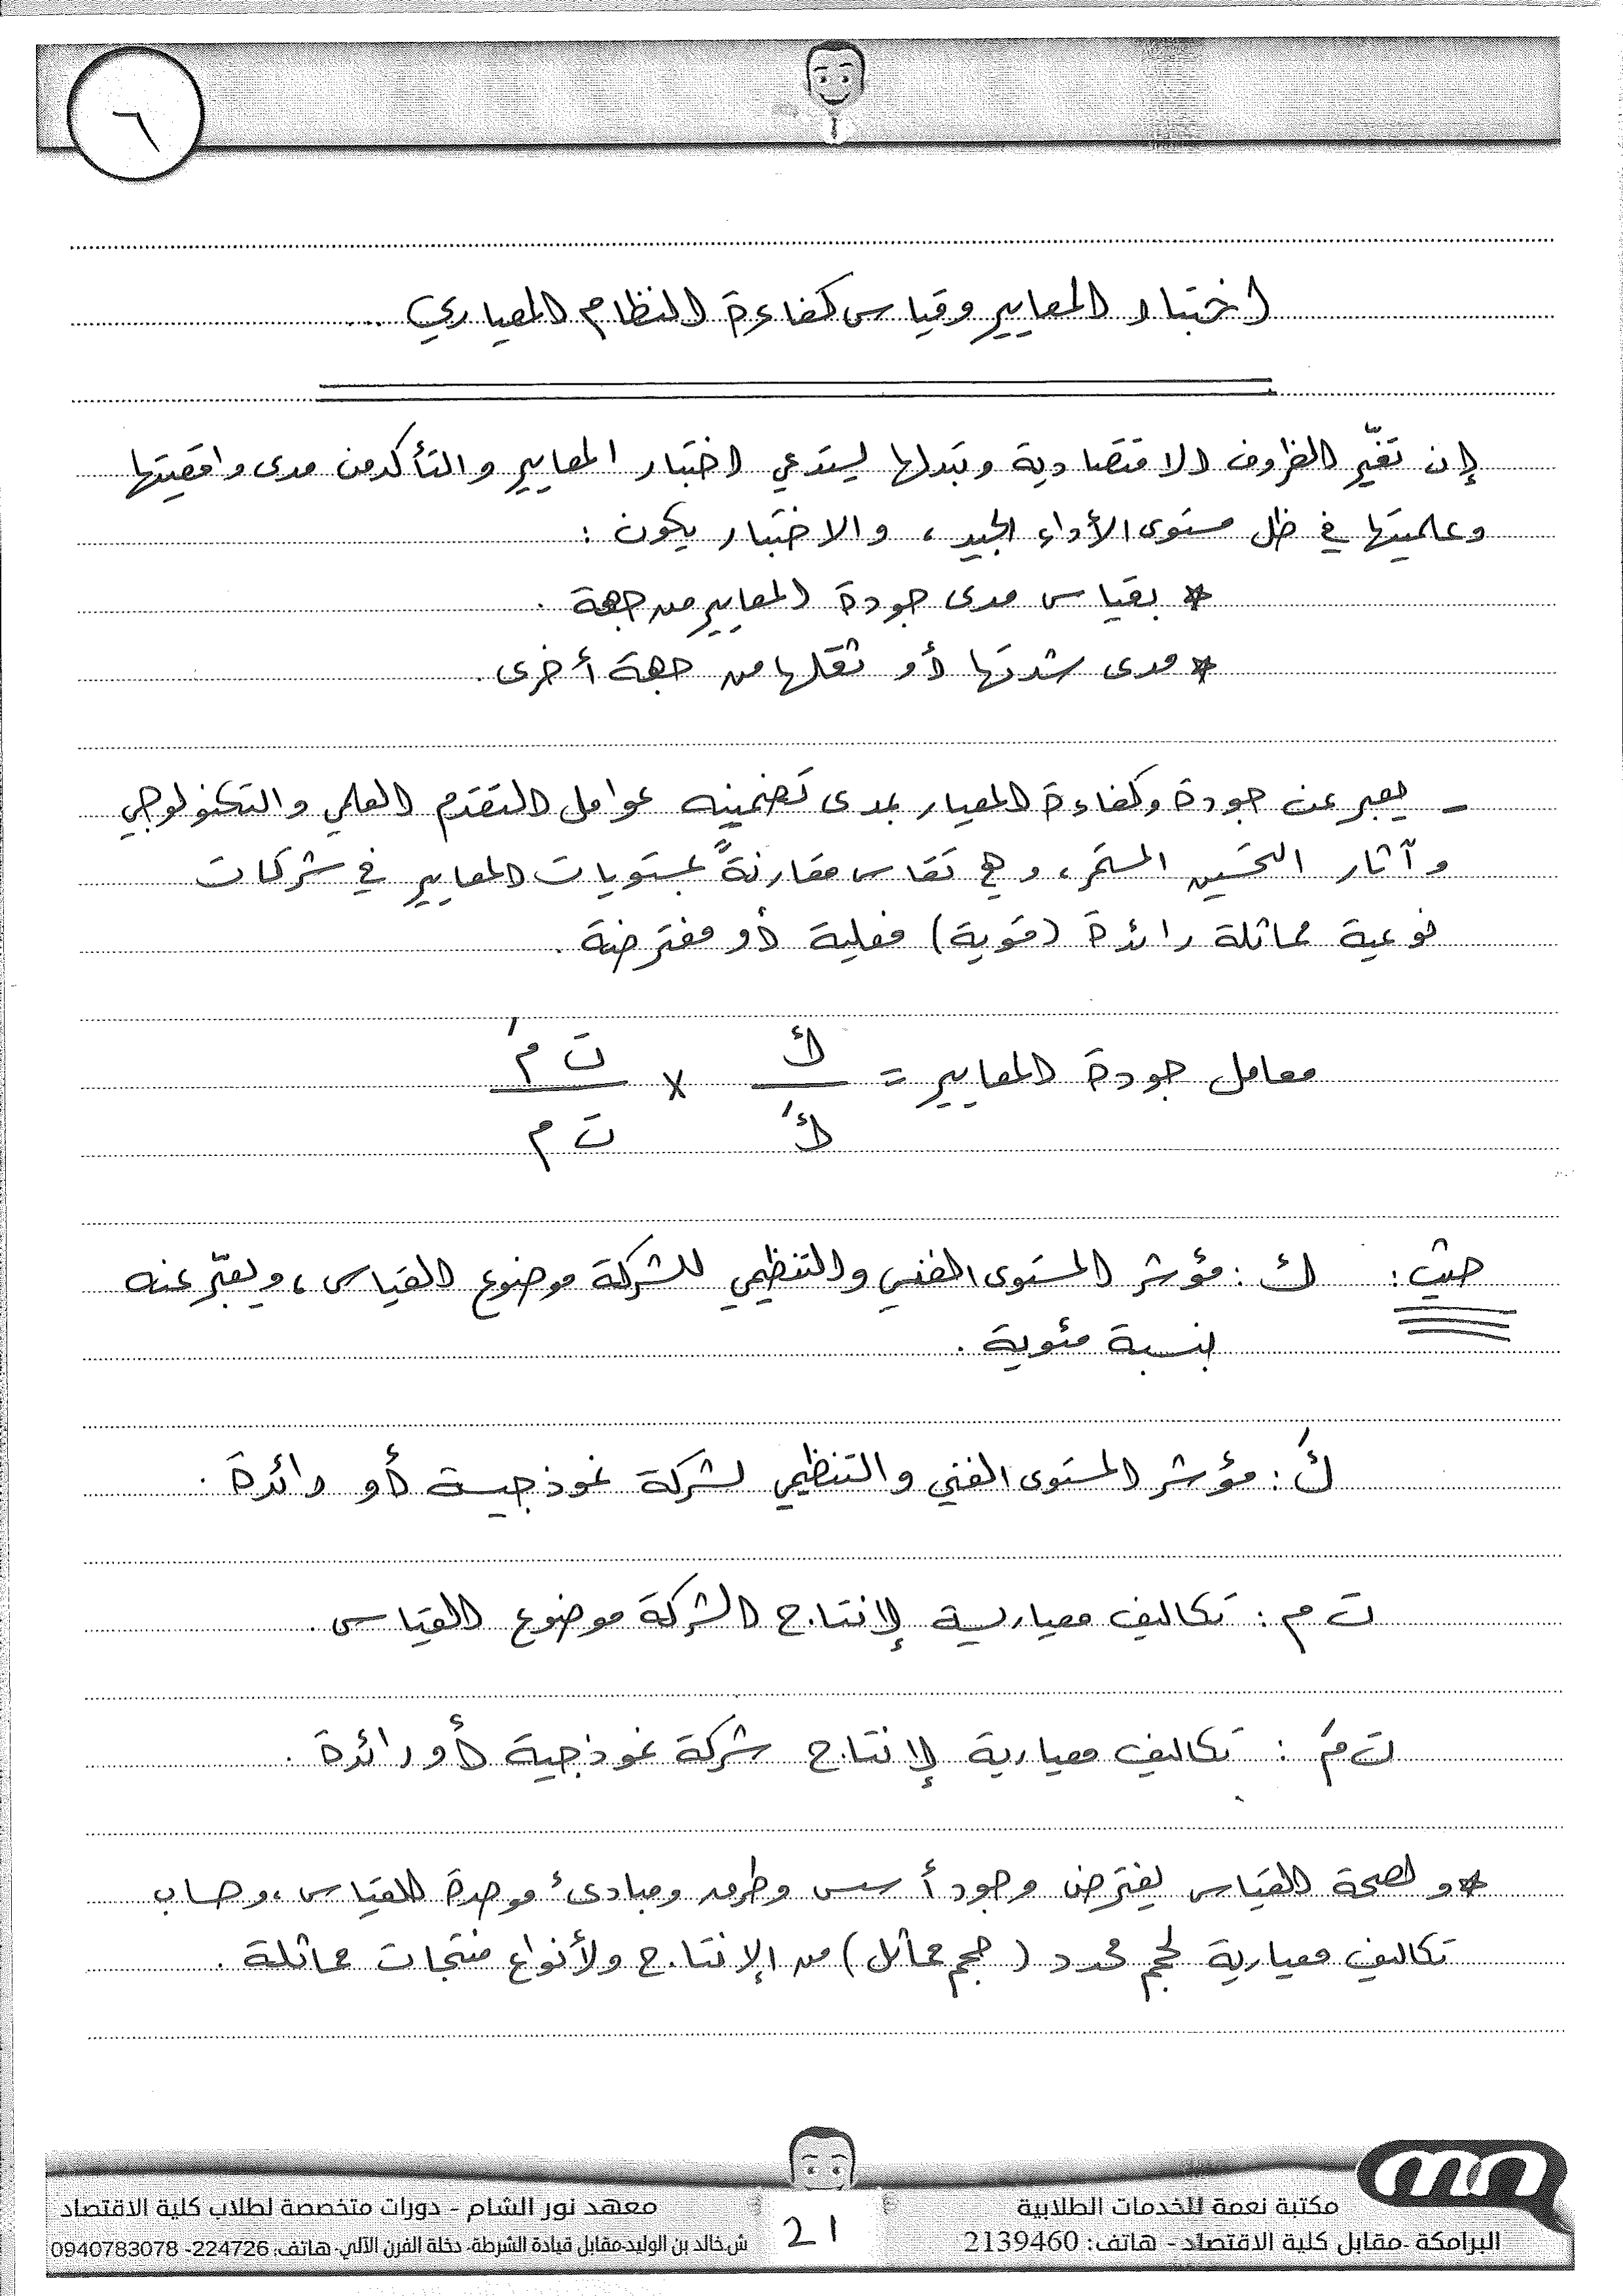 ٦
اختبار المعايير وقياس كفاءة النظام المعياري ..
إن تغيّر الظروف الاقتصادية وتبدلها يستدعي اختبار المعايير والتأكد من مدى واقعيتها
وعلميتها في ظل مستوى الأداء الجيد ، والاختبار يكون :
* بقياس مدى جودة المعايير من جهة .
* مدى شدتها أو ثقلها من جهة أخرى .
- يعبر عن جودة وكفاءة المعيار بمدى تضمينه عوامل التقدم العلمي والتكنولوجي
وآثار التحسين المستمر ، وهي تقاس مقارنةً بمستويات المعايير في شركات
نوعية مماثلة رائدة (قوية) فعلية أو مفترضة .
معامل جودة المعايير = ك / كَ × ت مَ / ت م
حيث : ك : مؤشر المستوى الفني والتنظيمي للشركة موضوع القياس ، ويعبّر عنه
بنسبة مئوية .
كَ : مؤشر المستوى الفني والتنظيمي لشركة نموذجية أو رائدة .
ت م : تكاليف معيارية لإنتاج الشركة موضوع القياس .
ت مَ : تكاليف معيارية لإنتاج شركة نموذجية أو رائدة .
* ولصحة القياس يفترض وجود أسس وطرق ومبادئ موحدة للقياس ، وحساب
تكاليف معيارية لحجم محدد (حجم مماثل) من الإنتاج ولأنواع منتجات مماثلة .
مكتبة نعمة للخدمات الطلابية
البرامكة -مقابل كلية الاقتصاد - هاتف: 2139460
21
معهد نور الشام - دورات متخصصة لطلاب كلية الاقتصاد
ش.خالد بن الوليد-مقابل قيادة الشرطة- دخلة الفرن الآلي- هاتف: 224726- 0940783078